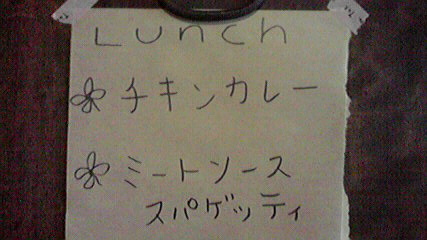 Lunch
チキンカレー
ミートソース
スパゲッティ